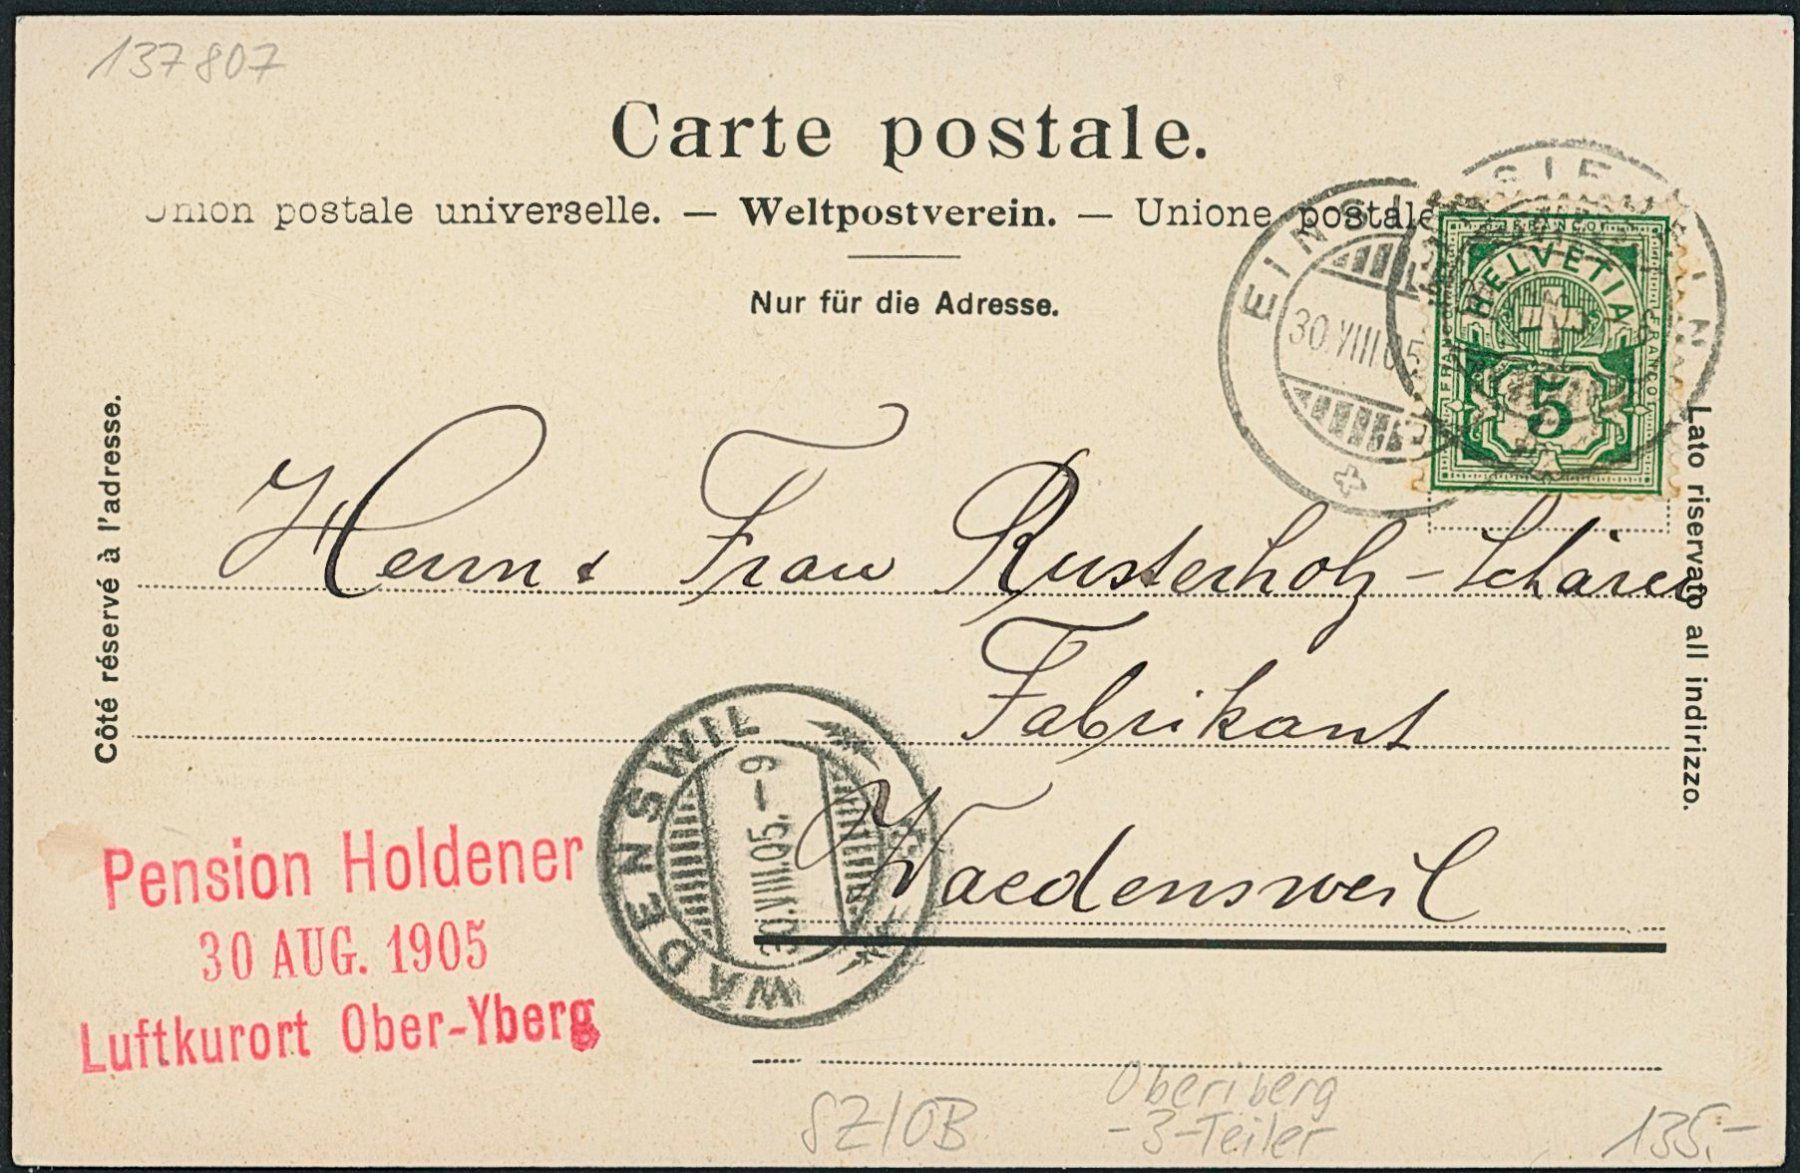 137807
Carte postale.
Union postale universelle. — Weltpostverein. — Unione postale
Nur für die Adresse.
EINSIEDELN
30.VIII.05
EINSIEDELN
FRANCO
HELVETIA
FRANCO
FRANCO
5
Côté réservé à l'adresse.
Lato riservato all indirizzo.
Herrn & Frau Rusterholz-Schärer
Fabrikant
Waedensweil
WÄDENSWIL
30.VIII.05.–9
Pension Holdener
30 AUG. 1905
Luftkurort Ober-Yberg
SZ/OB
Oberiberg
-3-Teiler
135.-